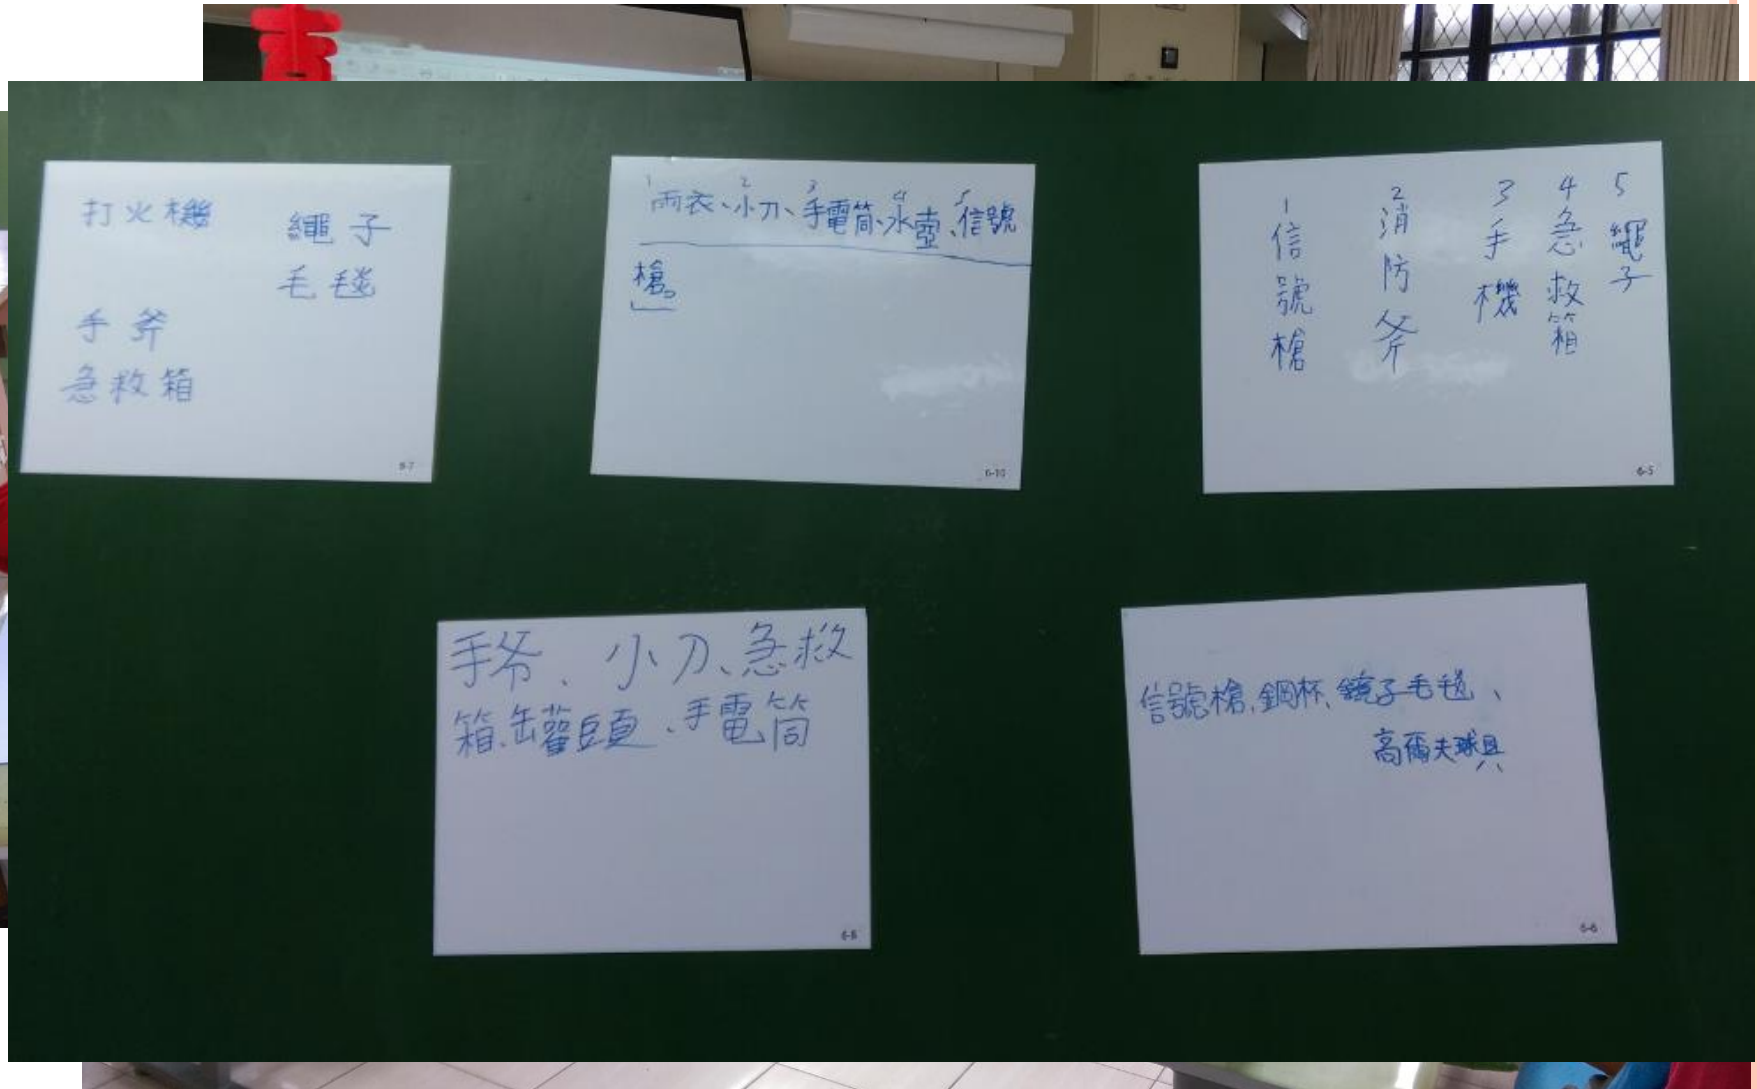 打火機
繩子
毛毯
手斧
急救箱
6-7
1 2 3 4 5
雨衣、小刀、手電筒、水壺、信號
槍。」
6-10
1信號槍
2消防斧
3手機
4急救箱
5繩子
6-5
手斧、小刀、急救
箱、罐頭、手電筒
6-8
信號槍、鋼杯、鏡子毛毯、
高爾夫球具
6-6